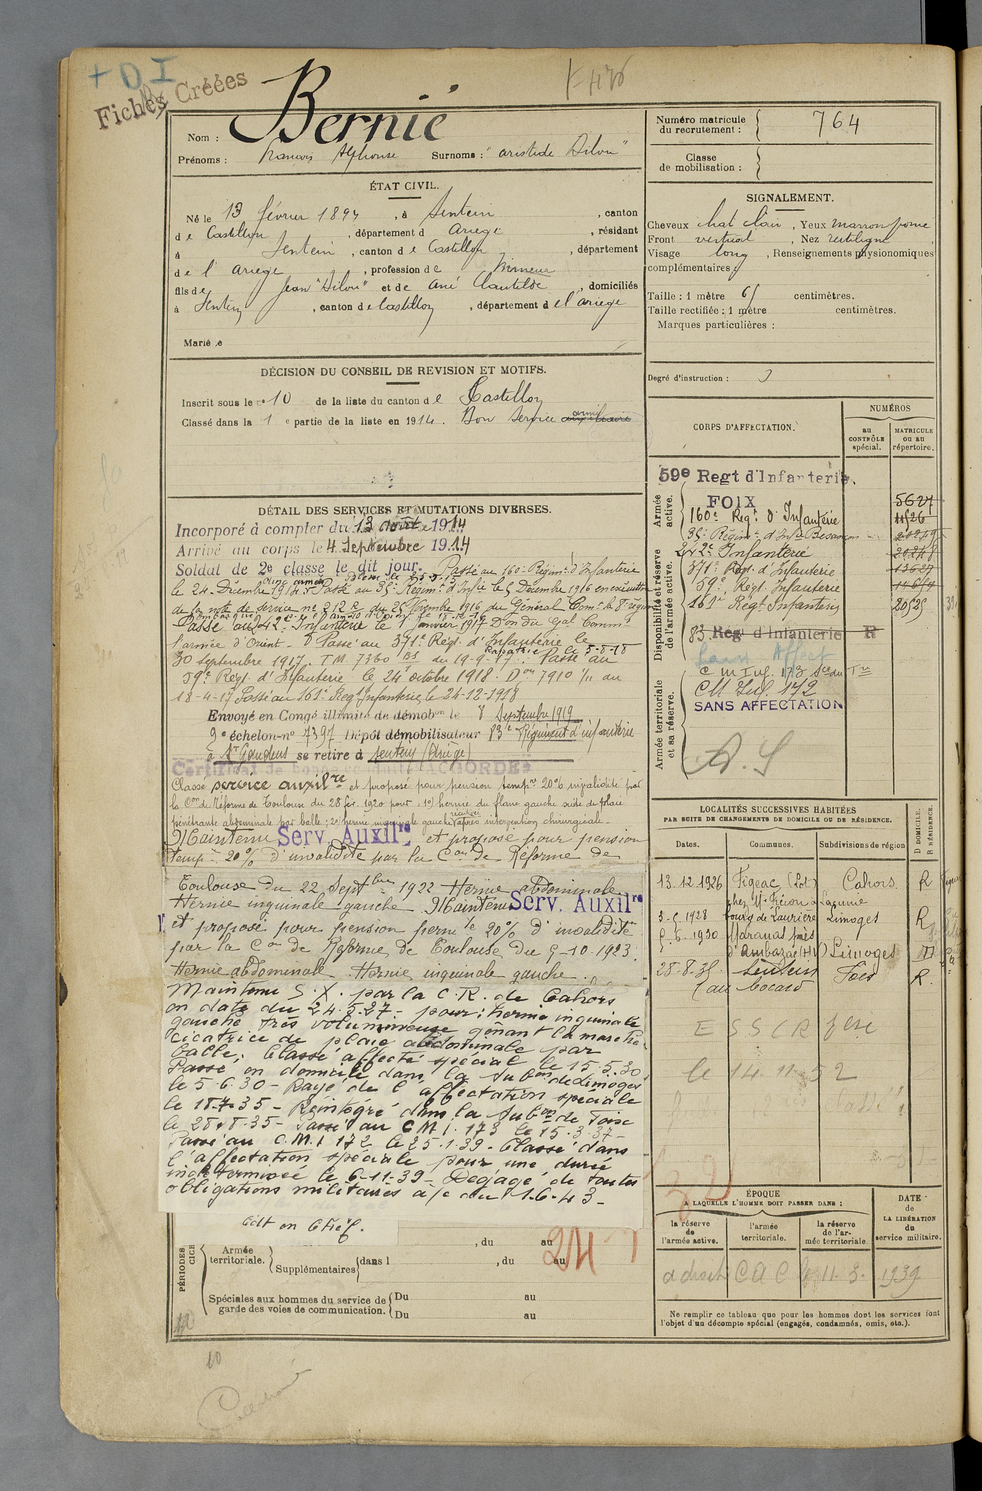 + D I
Fiches Créées
Nom : Bernié
Prénoms : François Alphonse Surnoms : "aristide Dilou"
ÉTAT CIVIL.
Né le 13 février 1894, à Sentein, canton
de Castillon, département d Ariege, résidant
à Sentein, canton de Castillon, département
de l'ariege, profession de mineur
fils de Jean "Dilou" et de ané Clautilde, domiciliés
à Sentein, canton de Castillon, département de l'ariege
Marié e
DÉCISION DU CONSEIL DE REVISION ET MOTIFS.
Inscrit sous le n° 10 de la liste du canton de Castillon
Classé dans la 1e partie de la liste en 1914. Bon service armé auxiliaire
DÉTAIL DES SERVICES ET MUTATIONS DIVERSES.
Incorporé à compter du 13 août 1914
Arrivé au corps le 4 Septembre 1914
Soldat de 2e classe le dit jour. Passé au 160e Régim. d'Infanterie
le 24 Décembre 1914. Passé au 35e Régim. d'Inf.ie le 5 Décembre 1916 en exécution
de la note de service n° 212 R du 25 Novembre 1916 du Général Com.t la 8e région
Passé au 42e Infanterie le 1 janvier 1917 Don du Gal Comm.t
l'armée d'Orient. Passé au 371e Régt. d'Infanterie le
30 Septembre 1917. T.M. 7360 BS du 19-9-17. Rapatrié le 5-8-18 Passé au
59e Régt. d'Infanterie le 24 octobre 1918. Don 7910 1/11 du
18-4-17 Passé au 161e Reg Infanterie le 24-12-1918
Envoyé en Congé illimité de démobon le 8 Septembre 1919
9e échelon-no 7397 Dépôt démobilisateur 83e Régiment d'infanterie
à St Gaudens se retire à Sentein (Ariège)
Certificat de bonne conduite ACCORDÉ
Classé service auxilre et proposé pour pension tempre 20% invalidité par
la Con de Réforme de Toulouse du 28 fév. 1920 pour 1°) hernie du flanc gauche suite de plaie
pénétrante abdominale par balle ; 2°) hernie inguinale gauche après intervention chirurgicale.
Maintenu Serv. Auxilre et proposé pour pension
tempre 20% d'invalidité par la Con de Réforme de
Toulouse du 22 Septbre 1922 Hernie abdominale
Hernie inguinale gauche Maintenu Serv. Auxilre
et proposé pour pension perm le 20% d'invalidité
par la Con de Réforme de Toulouse du 9-10-1923.
Hernie abdominale. Hernie inguinale gauche.
Maintenu S.X. par la C.R. de Cahors
en date du 24.5.27 - pour : hernie inguinale
gauche très volumineuse gênant la marche
cicatrice de plaie abdominale par
balle. Classé affecté spécial le 15.5.30
Passé en domicile dans la Subon de Limoges
le 5-6.30 - Rayé de l'affectation spéciale
le 18-7-35 - Réintégré dans la Subon de Foix
le 28-8-35 - Passé au C.M.I. 173 le 15.3.37 -
Passé au C.M.I 172 le 25-1-39 - Classé dans
l'affectation spéciale pour une durée
indéterminée le 6-11-39 - Dégagé de toutes
obligations militaires à/c du 1-6-43 -
PÉRIODES
Armée territoriale.
Supplémentaires
dans l , du au
, du au
24
Spéciales aux hommes du service de garde des voies de communication.
Du au
Du au
Numéro matricule du recrutement : 764
Classe de mobilisation :
SIGNALEMENT.
Cheveux chat clair, Yeux marron jaune
Front vertical, Nez rectiligne,
Visage long, Renseignements physionomiques
complémentaires :
Taille : 1 mètre 61 centimètres.
Taille rectifiée : 1 mètre centimètres.
Marques particulières :
Degré d'instruction : 3
CORPS D'AFFECTATION.
NUMÉROS
au CONTRÔLE spécial.
MATRICULE ou au répertoire.
Armée active.
Disponibilité et réserve de l'armée active.
Armée territoriale et sa réserve.
59e Regt d'Infanterie.
FOIX 5627
160e Regt d'Infanterie 11526
35e Régim. d'Infie Besançon
242e Infanterie
371e Régt. d'Infanterie 13627
59e Régt. Infanterie
161e Regt Infanterie 20535
83 Reg d'Infanterie R
Sans Affect
C M Inf. 173
CM Inf. 172
SANS AFFECTATION
A. S
LOCALITÉS SUCCESSIVES HABITÉES
PAR SUITE DE CHANGEMENTS DE DOMICILE OU DE RÉSIDENCE.
Dates. Communes. Subdivisions de région D DOMICILE. R RÉSIDENCE.
13.12.1926 Figeac (Lot) Cahors R
bourg de Laurière Limoges R
5-6-1930 d'Ambazac (HV) Limoges D
28-8-35 Sentein Foix R.
(au Bocard
le 14.11.52
ÉPOQUE
A LAQUELLE L'HOMME DOIT PASSER DANS :
la réserve de l'armée active.
l'armée territoriale.
la réserve de l'armée territoriale.
DATE de LA LIBÉRATION du service militaire.
a droit C A C 11.3. 1939
Ne remplir ce tableau que pour les hommes dont les services font
l'objet d'un décompte spécial (engagés, condamnés, omis, etc.).